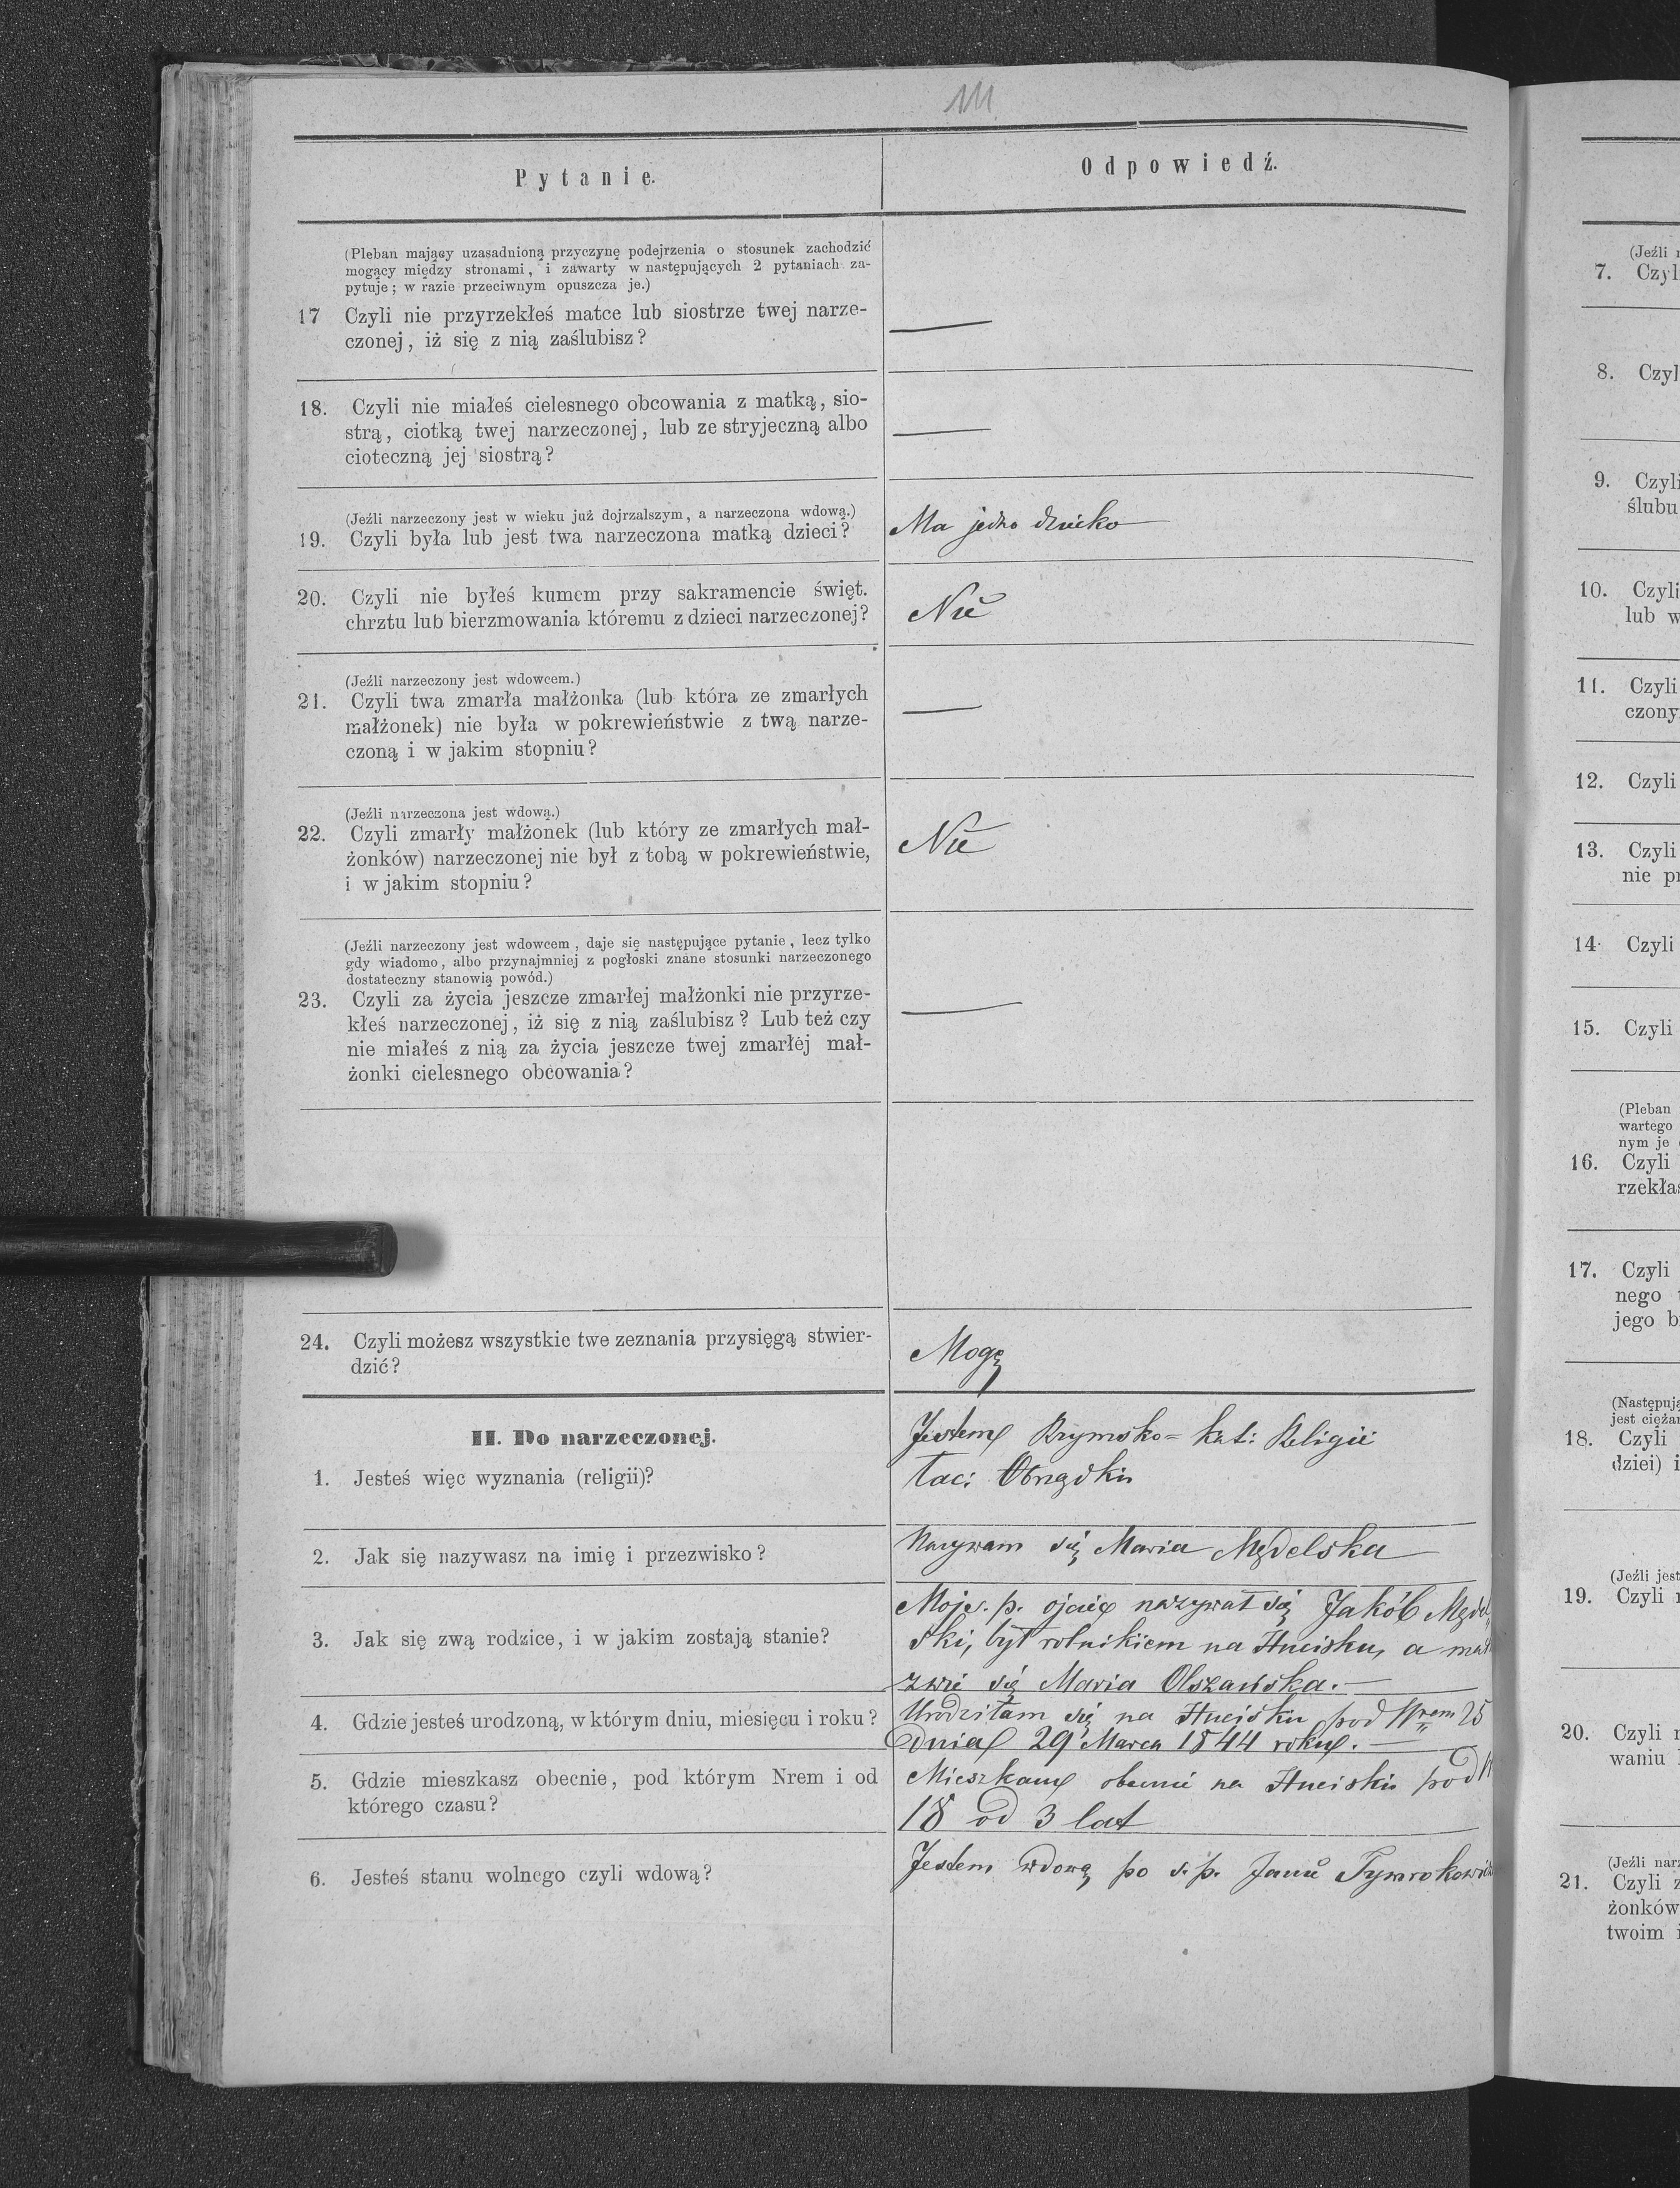 111
Pytanie.
Odpowiedź.
(Pleban mający uzasadnioną przyczynę podejrzenia o stosunek zachodzić
mogący między stronami, i zawarty w następujących 2 pytaniach za-
pytuje; w razie przeciwnym opuszcza je.)
17 Czyli nie przyrzekłeś matce lub siostrze twej narze-
czonej, iż się z nią zaślubisz?
18. Czyli nie miałeś cielesnego obcowania z matką, sio-
strą, ciotką twej narzeczonej, lub ze stryjeczną albo
cioteczną jej siostrą?
(Jeźli narzeczony jest w wieku już dojrzalszym, a narzeczona wdową.)
19. Czyli była lub jest twa narzeczona matką dzieci?
Ma jedno dziecko
20. Czyli nie byłeś kumem przy sakramencie święt.
chrztu lub bierzmowania któremu z dzieci narzeczonej?
Nie
(Jeźli narzeczony jest wdowcem.)
21. Czyli twa zmarła małżonka (lub która ze zmarłych
małżonek) nie była w pokrewieństwie z twą narze-
czoną i w jakim stopniu?
(Jeźli narzeczona jest wdową.)
22. Czyli zmarły małżonek (lub który ze zmarłych mał-
żonków) narzeczonej nie był z tobą w pokrewieństwie,
i w jakim stopniu?
Nie
(Jeźli narzeczony jest wdowcem, daje się następujące pytanie, lecz tylko
gdy wiadomo, albo przynajmniej z pogłoski znane stosunki narzeczonego
dostateczny stanowią powód.)
23. Czyli za życia jeszcze zmarłej małżonki nie przyrze-
kłeś narzeczonej, iż się z nią zaślubisz? Lub też czy
nie miałeś z nią za życia jeszcze twej zmarłéj mał-
żonki cielesnego obcowania?
24. Czyli możesz wszystkie twe zeznania przysięgą stwier-
dzić?
Mogę
II. Do narzeczonej.
1. Jesteś więc wyznania (religii)?
Jestem Rzymsko=kat: Religii
łac: Obrządku
2. Jak się nazywasz na imię i przezwisko?
Nazywam się Maria Mędelska
3. Jak się zwą rodzice, i w jakim zostają stanie?
Mój ś. p. ojciec nazywał się Jakób Mędel„
ski, był rolnikiem na Hucisku, a mat
zwie się Maria Olszańska.—
4. Gdzie jesteś urodzoną, w którym dniu, miesięcu i roku?
Urodziłam się na Hucisku pod Nrem 25
Dnia 29 Marca 1844 roku.—
5. Gdzie mieszkasz obecnie, pod którym Nrem i od
którego czasu?
Mieszkam obecnie na Hucisku pod N
18 od 3 lat
6. Jesteś stanu wolnego czyli wdową?
Jestem wdową po ś.p. Janie
(Jeźli
7. Czyl
8. Czyl
9. Czyli
ślubu
10. Czyli
lub w
11. Czyli
czony
12. Czyli
13. Czyli
nie pr
14. Czyli
15. Czyli
(Pleban
wartego
nym je
16. Czyli
rzekłaś
17. Czyli
nego
jego b
(Następują
jest ciężar
18. Czyli
dziei) i
(Jeźli jest
19. Czyli
20. Czyli
waniu
(Jeźli narz
21. Czyli z
żonków
twoim i